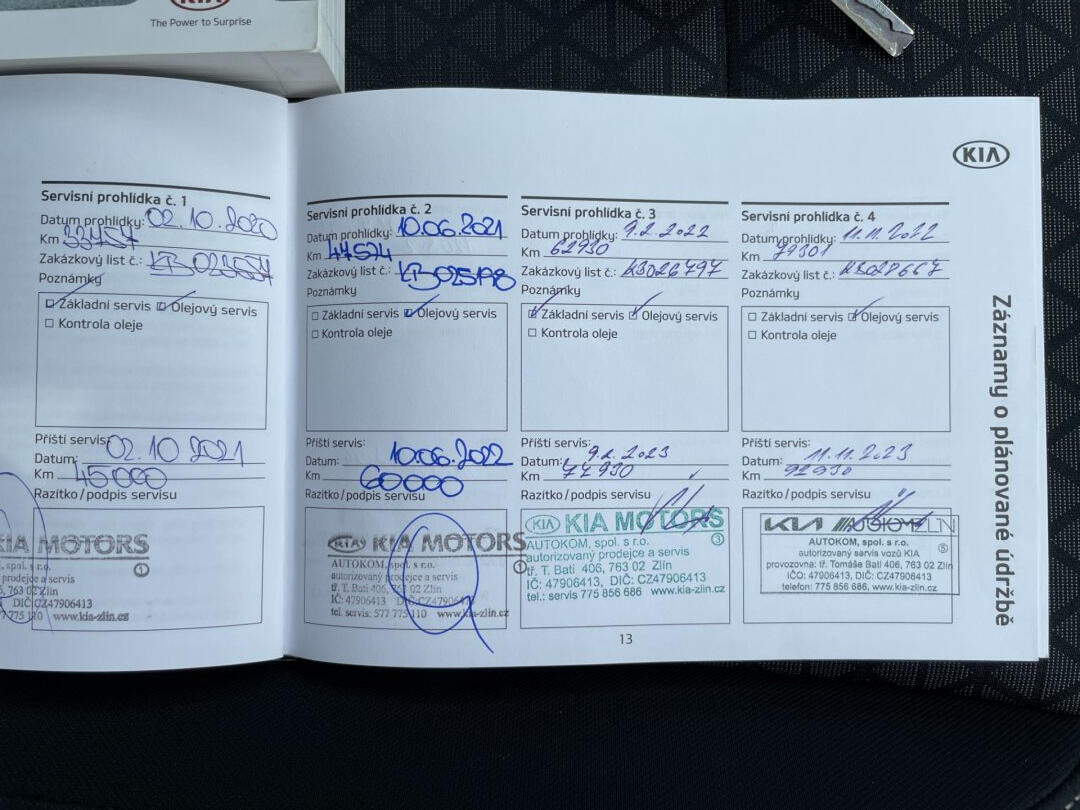 KIA
The Power to Surprise
KIA
Servisní prohlídka č. 1
Datum prohlídky: 02.10.2020
Km 33757
Zakázkový list č.:
Poznámky
Základní servis Olejový servis
Kontrola oleje
Příští servis:
Datum: 02.10 2021
Km 45000
Razítko/podpis servisu
KIA MOTORS
, spol. s r.o.
prodejce a servis
6, 763 02 Zlín
DIČ:CZ47906413
775 110 www.kia-zlin.cz
Servisní prohlídka č. 2
Datum prohlídky: 10.06.2021
Km 47574
Zakázkový list č.:
Poznámky
Základní servis Olejový servis
Kontrola oleje
Příští servis:
Datum: 10.06.2022
Km 60000
Razítko/podpis servisu
KIA KIA MOTORS
AUTOKOM, spol. s r.o.
autorizovaný prodejce a servis
tř. T. Bati 406, 763 02 Zlín
IČ: 47906413 DIČ:CZ47906413
tel. servis: 577 775 110 www.kia-zlin.cz
1
Servisní prohlídka č. 3
Datum prohlídky: 9.2.2022
Km 62930
Zakázkový list č.: KB026797
Poznámky
Základní servis Olejový servis
Kontrola oleje
Příští servis:
Datum: 9.2.2023
Km 77930
Razítko/podpis servisu
KIA KIA MOTORS
3
AUTOKOM, spol. s r.o.
autorizovaný prodejce a servis
tř. T. Bati 406, 763 02 Zlín
IČ: 47906413, DIČ: CZ47906413
tel.: servis 775 856 686 www.kia-zlin.cz
Servisní prohlídka č. 4
Datum prohlídky: 11.11.2022
Km 79301
Zakázkový list č.: KB028667
Poznámky
Základní servis Olejový servis
Kontrola oleje
Příští servis:
Datum: 11.11.2023
Km 92930
Razítko/podpis servisu
KIA AUTOKOM ZLIN
AUTOKOM, spol. s r.o.
autorizovaný servis vozů KIA
5
provozovna: tř. Tomáše Bati 406, 763 02 Zlín
IČO: 47906413, DIČ: CZ47906413
telefon: 775 856 686, www.kia-zlin.cz
Záznamy o plánované údržbě
13